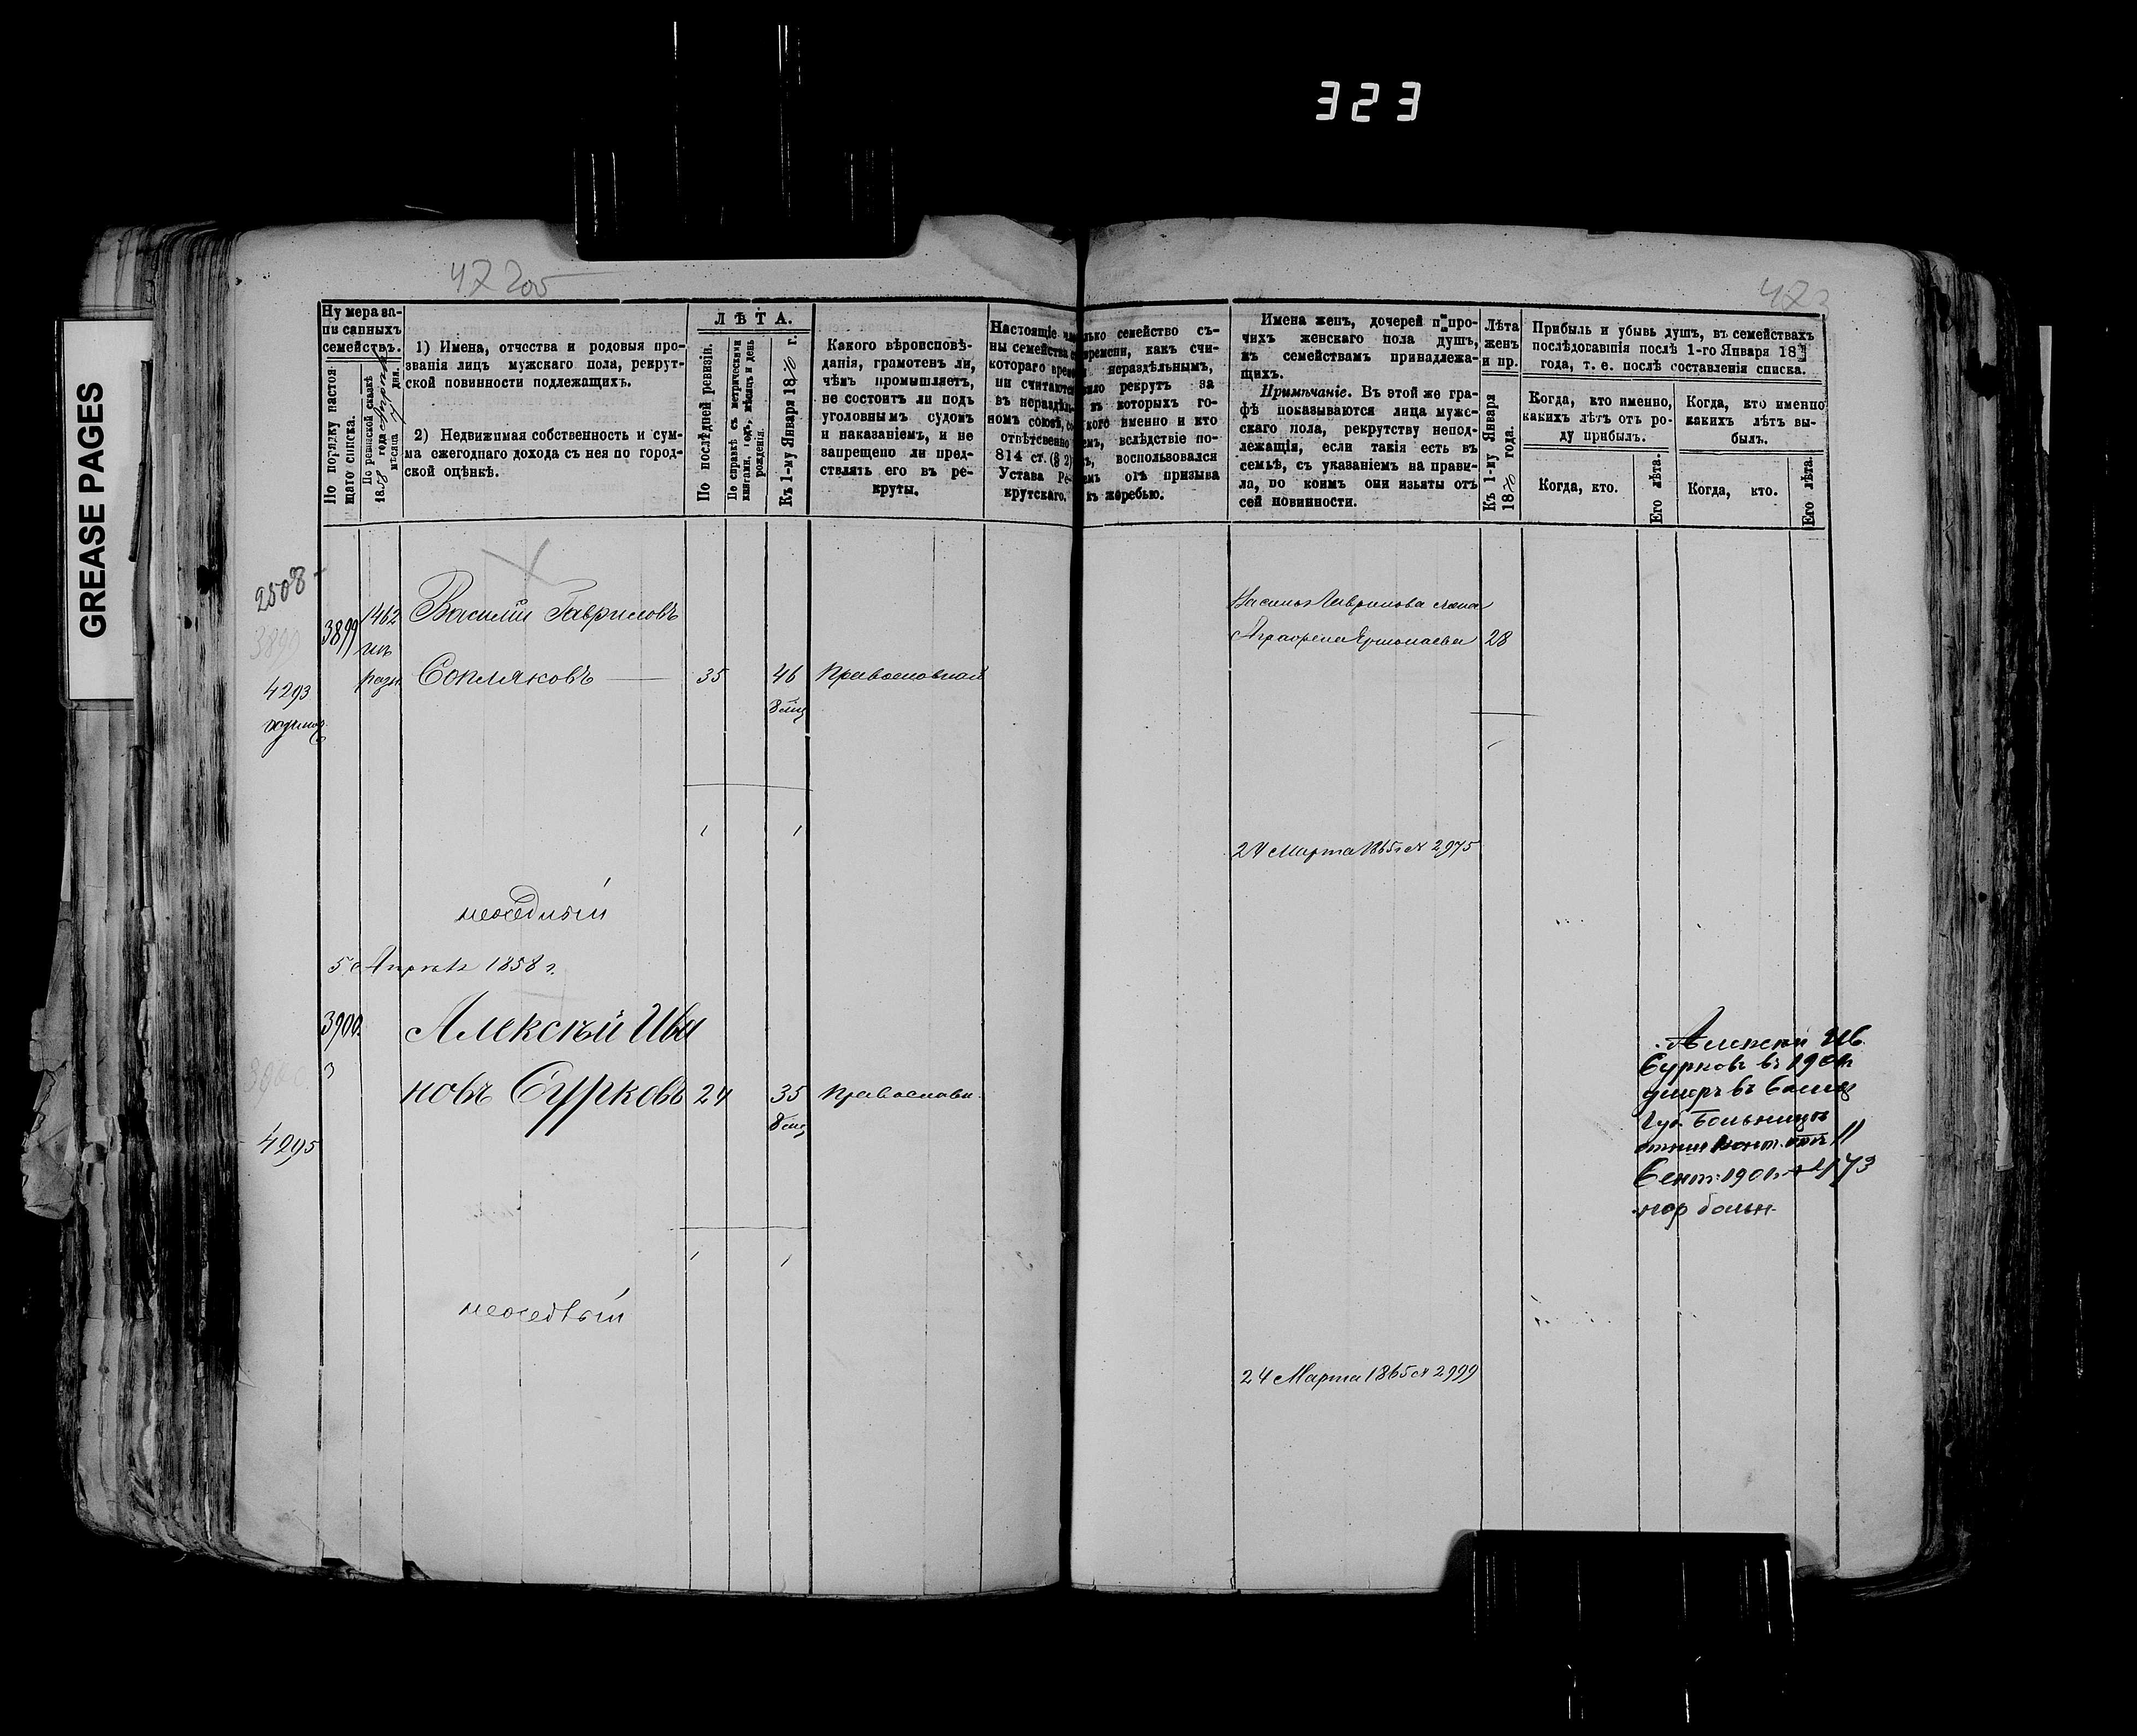 323
GREASE PAGES
42205
423
Нумера запи-
санныхъ
семействъ.
По порядку настоя-
щаго списка.
По ревизской сказкѣ
1858 года Апрѣля
мѣсяца 5 дня.
1) Имена, отчества и родовыя про-
званія лицъ мужскаго пола, рекрут-
ской повинности подлежащихъ.
2) Недвижимая собственность и сум-
ма ежегоднаго дохода съ нея по город-
ской оцѣнкѣ.
ЛѢТА.
По послѣдней ревизіи.
По справкѣ съ метрическими
книгами, годъ, мѣсяцъ и день
рожденія.
Къ 1-му Января 1870 г.
Какого вѣроисповѣ-
данія, грамотенъ ли,
чѣмъ промышляетъ,
не состоитъ ли подъ
уголовнымъ судомъ
и наказаніемъ, и не
запрещено ли пред-
ствлять его въ ре-
круты.
Настоящіе
ны семейства
котораго врем
ни считаются
въ нераздѣль
номъ союзѣ, со
отвѣтственно
814 ст. (§ 2)
Устава Ре-
крутскаго.
лько семейство съ-
времени, какъ счи-
нераздѣльнымъ,
рекрутъ за
которыхъ го-
именно и кто
вслѣдствіе по-
воспользовался
отъ призыва
къ жеребью.
Имена женъ, дочерей и про-
чихъ женскаго пола душъ,
къ семействамъ принадлежа-
щихъ.
Примѣчаніе. Въ этой же гра-
фѣ показываются лица муже-
скаго пола, рекрутству непод-
лежащія, если такія есть въ
семьѣ, съ указаніемъ на прави-
ла, по коимъ они изъяты отъ
сей повинности.
Лѣта
женъ
и пр.
Къ 1-му Января
1870 года.
Прибыль и убыль душъ, въ семействахъ
послѣдовавшія послѣ 1-го Января 187
года, т. е. послѣ составленія списка.
Когда, кто именно,
какихъ лѣтъ отъ ро-
ду прибылъ.
Когда, кто именно
какихъ лѣтъ вы-
былъ.
Когда, кто.
Его лѣта.
Когда, кто.
Его лѣта.
2508
3899
4293
3899
1462
изъ
разн
Василій Гавриловъ
Сопляковъ
35
46
8 мѣс
Православнаго
Василья Гаврилова жена
Аграфена Ермолаева 28
1 1
24 Марта 1865 г № 2975
неоседлый
5 Апрѣля 1858 г.
3900
3900
Алексѣй Ива
новъ Сурковъ 24
35
8 мѣс
Православн.
4295
Алексѣй Ив.
Сурковъ въ 1901 г
умеръ въ Самар
Губ больницѣ
отнош конт. отъ 11
Сент. 1901 г № 4173
гор больн.
1 1
неоседлый
24 Марта 1865 № 2999